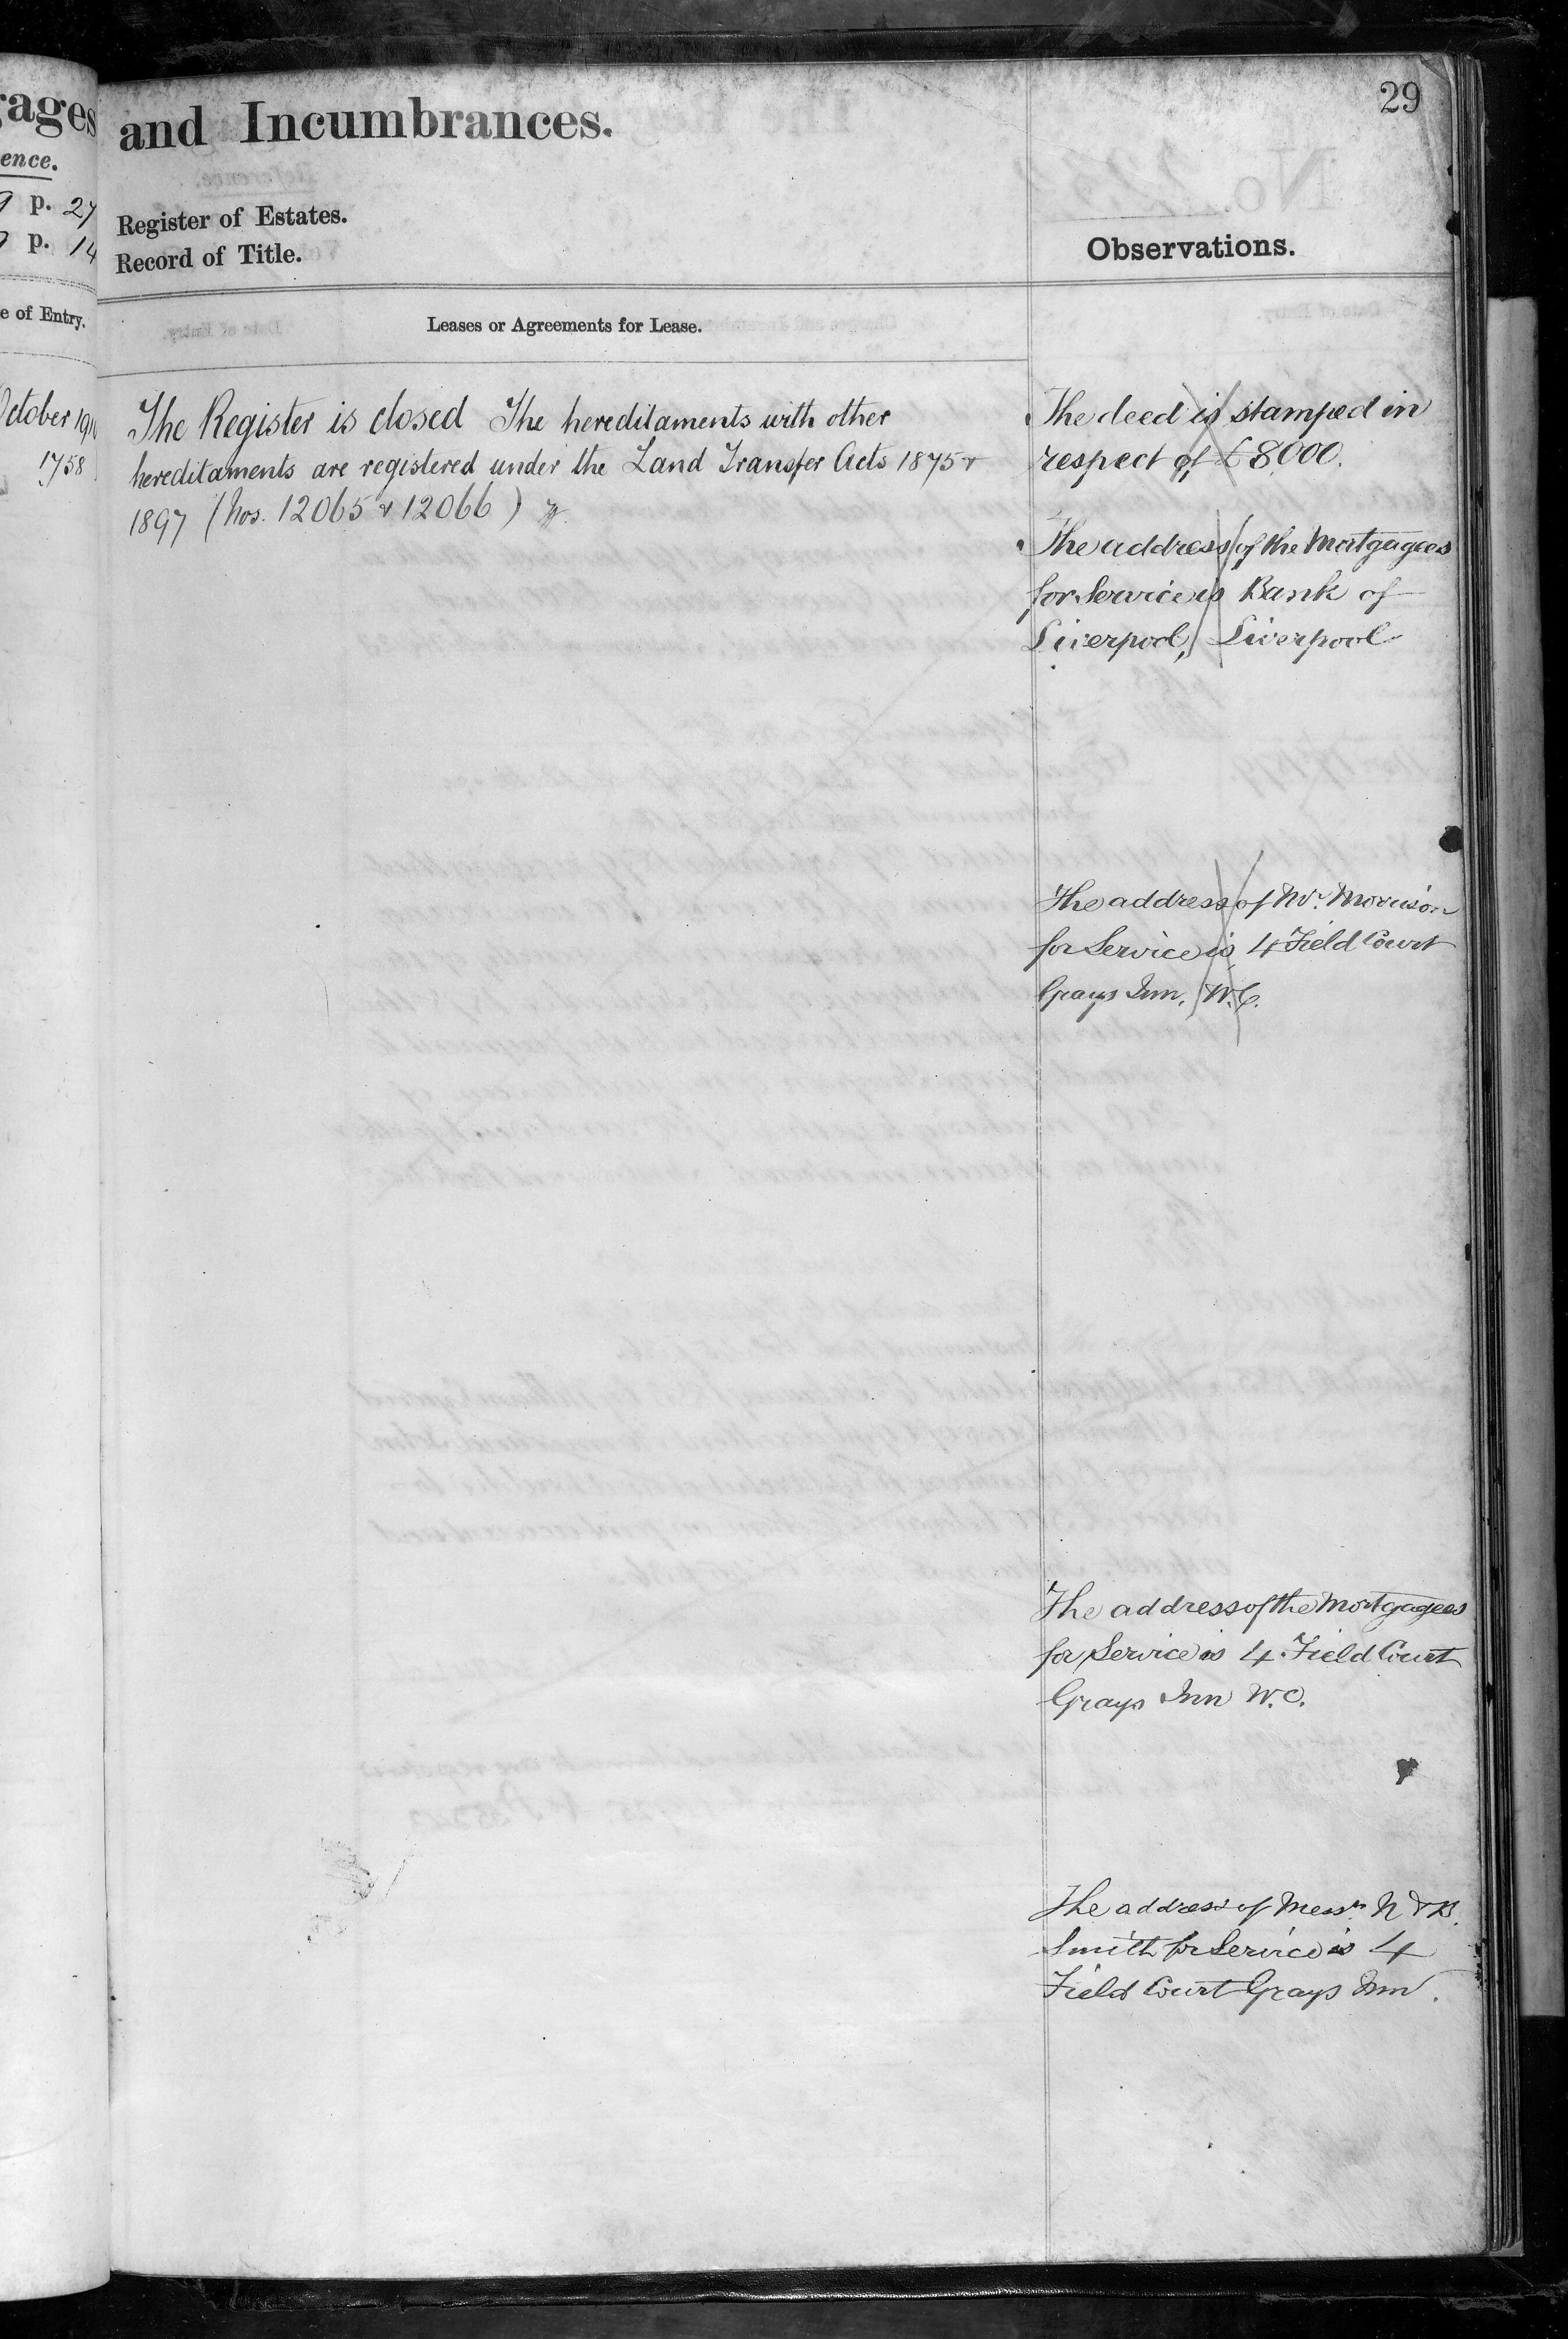 gages
ence.
p. 27
p. 14
e of Entry.
October 191
1758
and Incumbrances.
29
Register of Estates.
Record of Title.
Observations.
Leases or Agreements for Lease.
The Register is closed The hereditaments with other
hereditaments are registered under the Land Transfer Acts 1875 &
1897 (Nos. 12065 & 12066)
The deed is stamped in
respect of £8,000.
The address of the Mortgagees
for Service is Bank of
Liverpool, Liverpool
The address of Mr. Morrison
for Service is 4 Field Court
Grays Inn, W.C.
The address of the Mortgagees
for Service is 4 Field Court
Grays Inn W.C.
The address of Messrs. N & B.
Smith for Service is 4
Field Court Grays Inn.